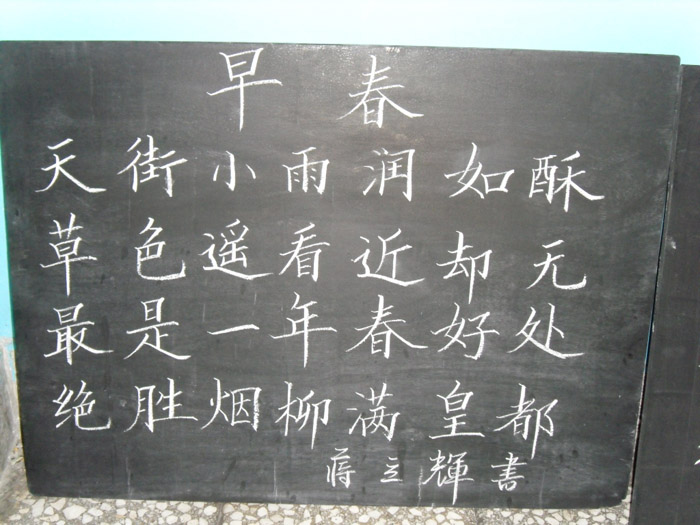 早春
天街小雨润如酥
草色遥看近却无
最是一年春好处
绝胜烟柳满皇都
蒋立輝書